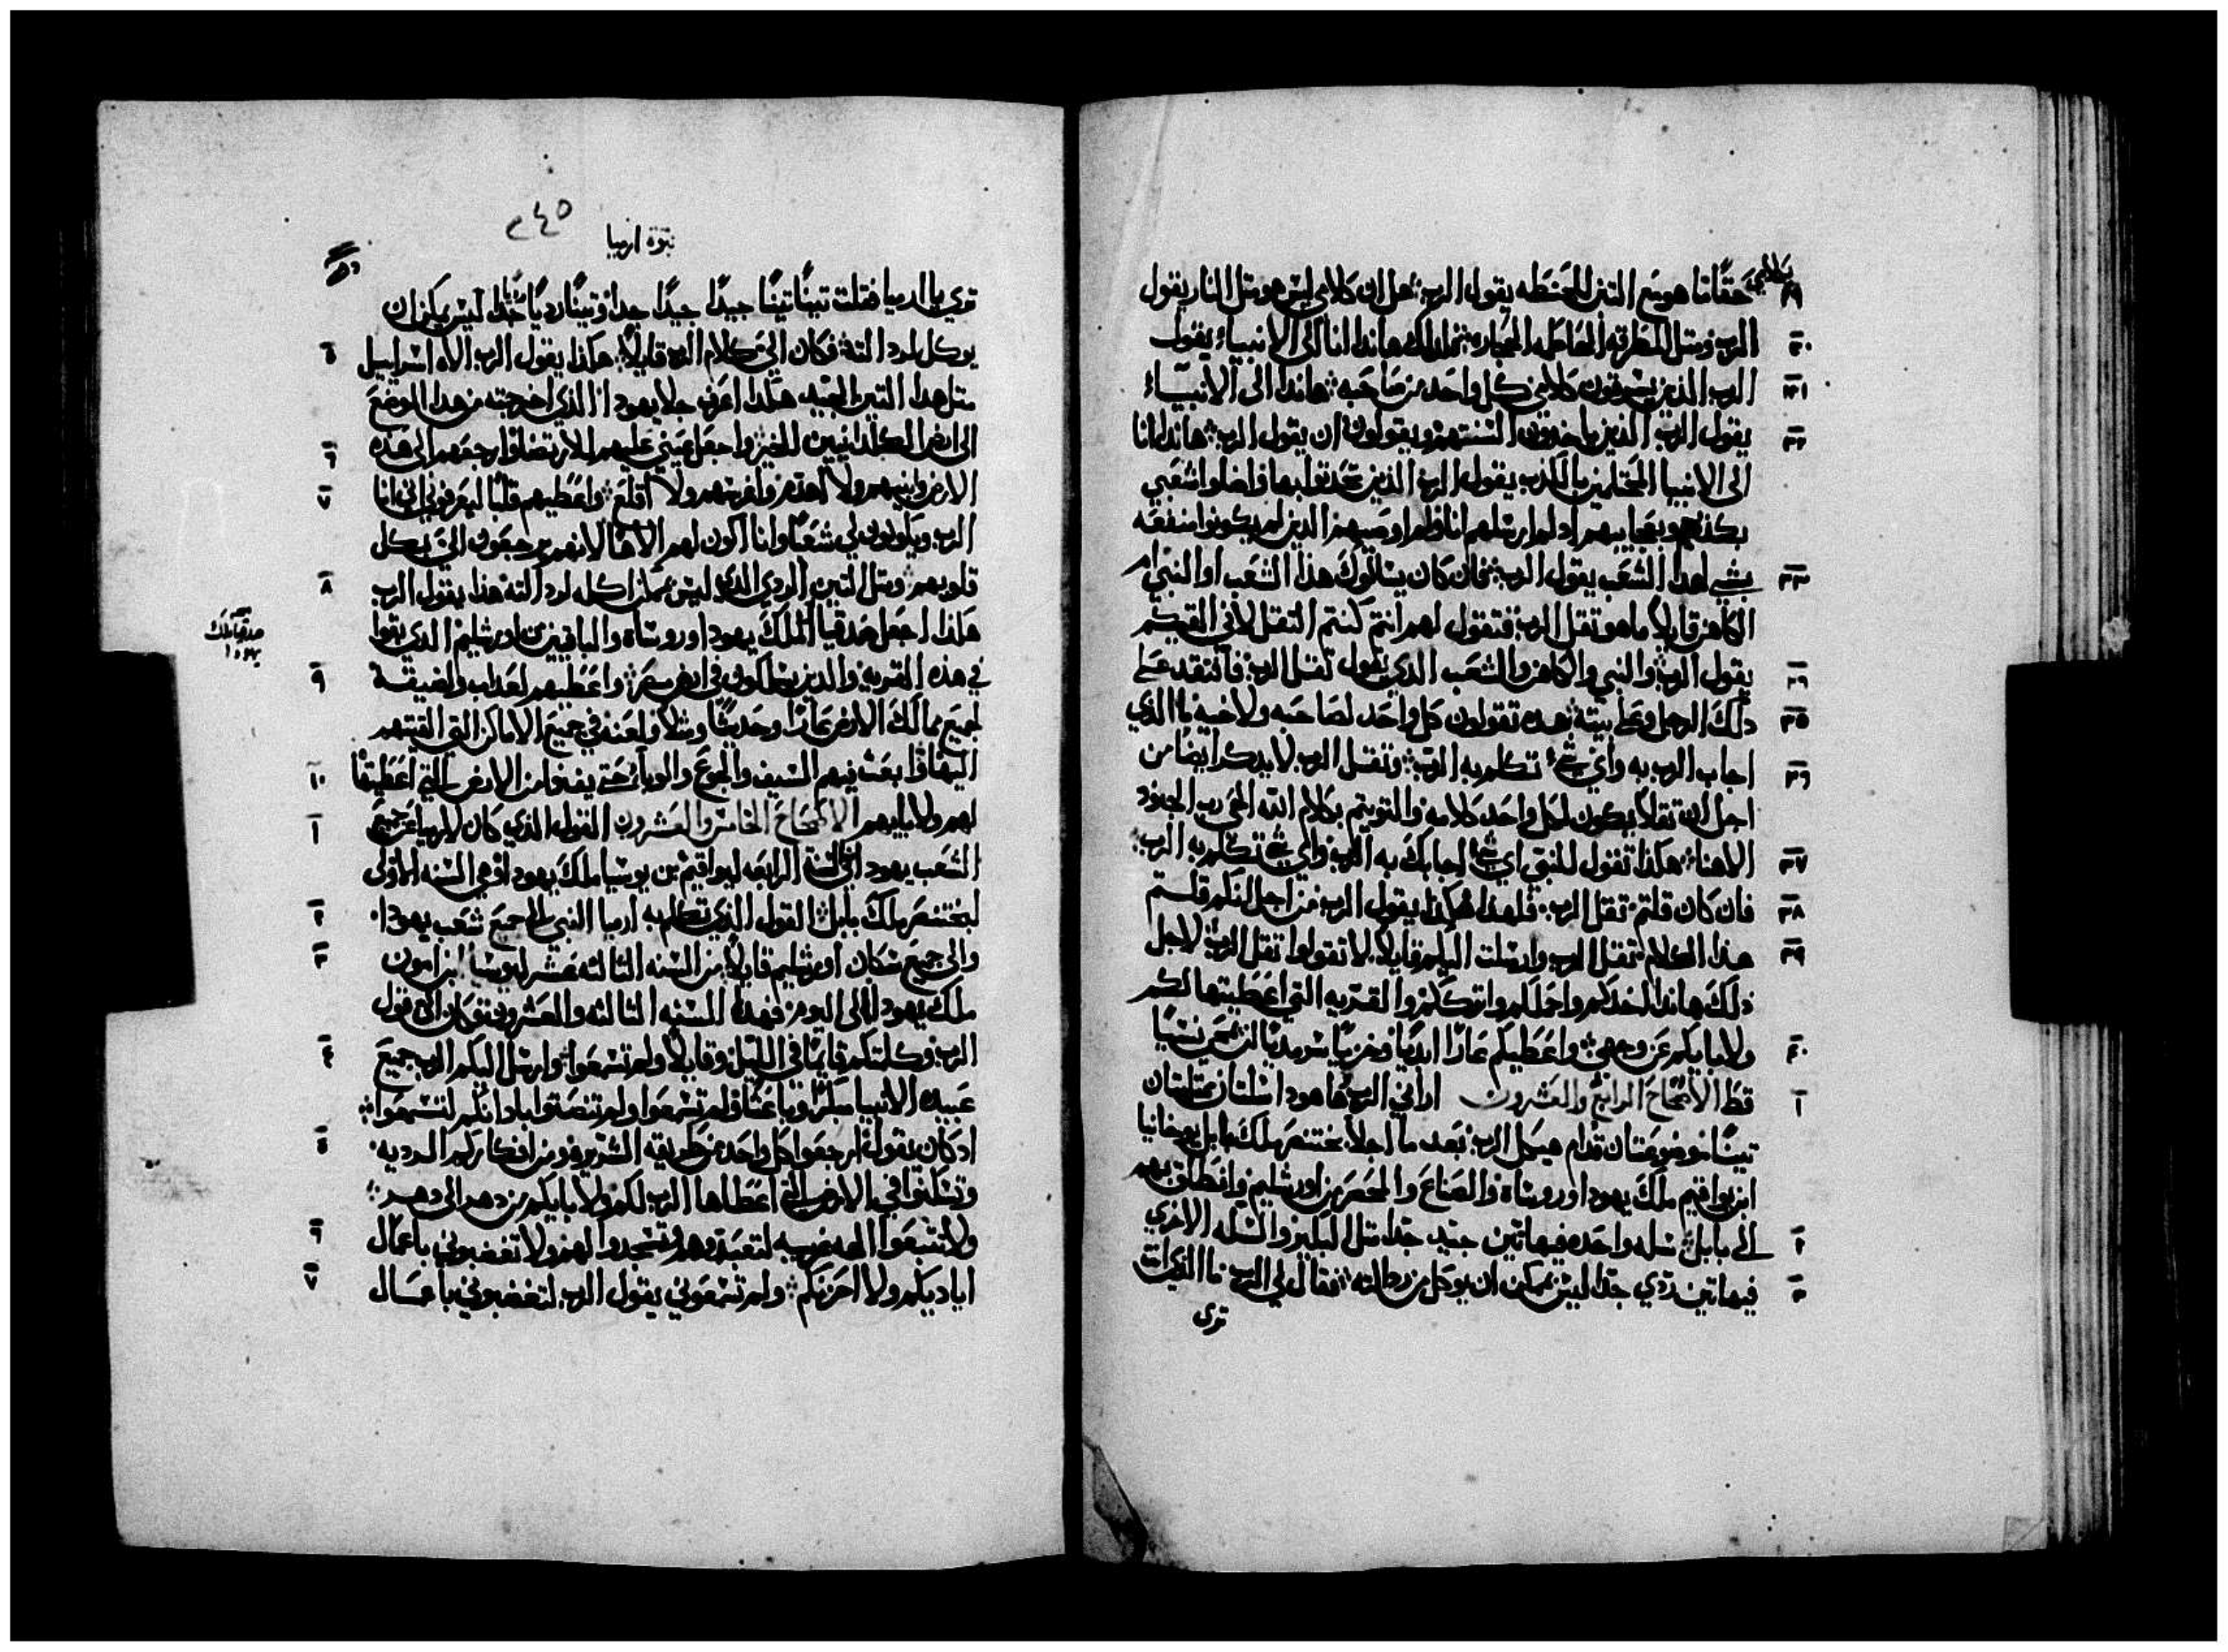 بكلامي حقًا ما هو مع التبن للحنطه يقول الرب هل ان كلامي ليس هو مثل النار يقول
٣٠ الرب ومثل المطرقه الحجاره لدلك هاندا انا الى الانبياء يقول
٣١ الرب الذين يسرقون كلامي كل واحد من صاحبه هاندا الى الانبيآء
٣٢ يقول الرب الذين ياخدون السنتهم ويقولون ان يقول الرب هاندا انا
الى الانبيا بالكدب يقول الرب الذين واضلوا شعبي
بكذبهم وبعجايبهم اد لم ارسلهم انا ولم اوصيهم الدين لم يكونوا منفعه
٣٣ بشي لهدا الشعب يقول الرب فان كان يسالوك هذا الشعب او النبي ام
الكاهن قايلًا ما هو ثقل الرب فتقول لهم انتم كنتم الثقل لاني القيكم
٣٤ يقول الرب والنبي والكاهن والشعب الدي يقول ثقل الرب فافتقد على
٣٥ دلك الرجل وعلى بيته بهده تقولون كل واحد لصاحبه ولاخيه ما الذي
٣٦ اجاب الرب به واي شي تكلم به الرب وثقل الرب لا يدكر ايضًا من
اجل ان ثقلًا يكون لكل واحد كلامه بكلام الله الحي رب الجنود
٣٧ الاهنا هكذا تقول للنبي اي شي اجابك به الرب واي شي تكلم به الرب
٣٨ فان كان قلتم ثقل الرب فلهذا هكذا يقول الرب من اجل انكم قلتم
٣٩ هذا الكلام ثقل الرب وارسلت اليكم قايلًا لا تقولوا ثقل الرب لاجل
ذلك هاندا اخدكم واحملكم واترككم والقريه التي اعطيتها لكم
٤٠ ولابايكم عن وجهي واعطيكم عارًا ابديًا وخزيًا سرمديًا نسيًا
١ قط الاصحاح الرابع والعشرون اراني الرب هاهودا سلتان ممتلتان
تينًا موضوعتان قدام هيكل الرب بعد ما اجلا بختنصر ملك بابل يوخانيا
ابن يواقيم ملك يهودا وروساه والصناع من اورشليم وانطلق بهم
٢ الى بابل سله واحده فيها تين جيد جدًا مثل والسله الاخري
٣ فيها تين ردي جدًا ليس يمكن ان يوكل من رداله فقال لي الرب ما الذي انت
ترى
٢٤٥
نبوة ارميا
ترى يا ارميا فقلت تينًا تينًا جيدًا جيدًا جدًا وتينًا رديًا جدًا ليس يمكن ان
يوكل لرداله فكان اليّ كلام الرب قايلًا هكذا يقول الرب الاه اسراييل ٥
مثل هدا التين الجيد هكدا اعرف جلا يهودا الذي اخرجته من هدا الموضع
الى ارض الكلدانيين للخير واجعل عيني عليهم وارجعهم الى هده ٦
الارض وابنيهم ولا اهدم واغرسهم ولا اقلع واعطيهم قلبًا ليعرفوني اني انا ٧
الرب ويكونون لي شعبًا وانا اكون لهم الاهًا لانهم يرجعون اليّ بكل
قلوبهم ومثل التين الردي الدي ليس يمكن اكله لرداله هذا يقول الرب ٨
هكذا اجعل صدقيا الملك يهودا وروساه والباقيين من اورشليم الدي بقوا
صدقيا ملك
يهودا
في هذه القريه والدين يسلكون في ارض مصر واعطيهم لعداب ولضيقة ٩
لجميع ممالك الارض عارًا وحديثًا ومثلًا ولعنه في جميع الاماكن التي القيتهم
اليها وابعث فيهم السيف والجوع والوبا حتى يفنوا من الارض التي اعطيتها ١٠
لهم ولابايهم الاصحاح الخامس والعشرون القول الذي كان لارميا عن جميع ١
الشعب يهودا في السنة الرابعه ليواقيم بن يوسيا ملك يهودا وهي السنه الاولى
لبختنصر ملك بابل القول الذي تكلم به ارميا النبي الى جميع شعب يهودا ٢
والى جميع سكان اورشليم قايلًا من السنه الثالثه عشر ليوسيا ابن امون ٣
ملك يهودا الى اليوم فهده السنه الثالثه والعشرون قول
الرب وكلمتكم قايمًا في الليل وقايلًا ولم تسمعوا وارسل اليكم الرب جميع ٤
عبيده الانبيا مبكرًا وباعثًا ولم تسمعوا ولم تنصتوا باذانكم لتسمعوا
اد كان يقول ارجعوا كل واحد من طريقه الشرير ومن افكاركم الرديه ٥
وتسكنوا في الارض التي اعطاها الرب لكم ولابايكم من دهر الى دهر
ولا تتبعوا الهه غريبه لتعبدوهم وتسجدوا لهم ولا تغضبوني باعمال ٦
اياديكم ولا احزنكم ولم تسمعوني يقول الرب لتغضبوني باعمال ٧